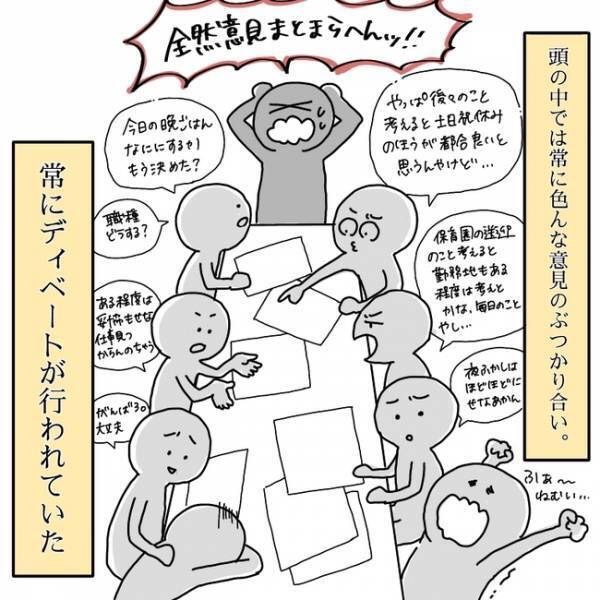 全然意見まとまらへんッ!!
頭の中では常に色んな意見のぶつかり合い。
やっぱ後々のこと
考えると土日祝休み
のほうが都合良いと
思うんやけど…
今日の晩ごはん
なににするか
もう決めた?
職種
どうする?
保育園の送迎
のこと考えると
勤務地もある
程度は考えと
かな、毎日のこと
やし…
ある程度は
妥協もせな
仕事見つ
からんのちゃう
夜ふかしは
ほどほどに
せなあかん
がんばろ。
大丈夫
ふぁ〜
ねむい…
常にディベートが行われていた